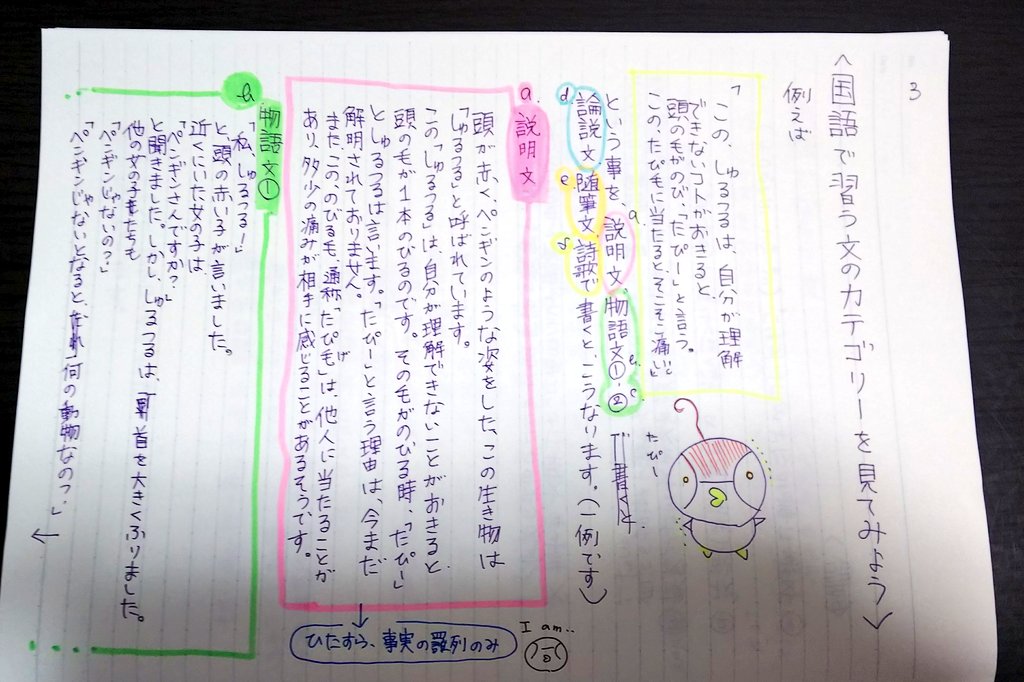 3
<国語で習う文のカテゴリーを見てみよう>
例えば
「この、しゅるつるは、自分が理解
できないコトがおきると、
頭の毛がのび、「たぴー」と言う。
この、たぴ毛に当たると、そこそこ痛い」
という事を、説明文 物語文①・②
a. b. c.
論説文 随筆文 詩歌で書くと、こうなります。(一例です)
d. e. f.
たぴー
a.
説明文
頭が赤く、ペンギンのような姿をした、この生き物は
「しゅるつる」と呼ばれています。
この「しゅるつる」は、自分が理解できないことがおきると
頭の毛が1本のびるのです。その毛がのびる時、「たぴー」
としゅるつるは言います。「たぴー」と言う理由は、今まだ
解明されておりません。
またこの、のびる毛、通称「たぴ毛」は、他人に当たることが
げ
あり、多少の痛みが相手に感じることがあるそうです。
ひたすら、事実の羅列のみ
I am..
b.
物語文①
「私、しゅるつる!」
と、頭の赤い子が言いました。
近くにいた女の子は、
「ペンギンさんですか?」
と聞きました。しかし、しゅるつるは、首を大きくふりました。
他の女の子たちも
「ペンギンじゃないの?」
「ペンギンじゃないとなると、何の動物なの?」